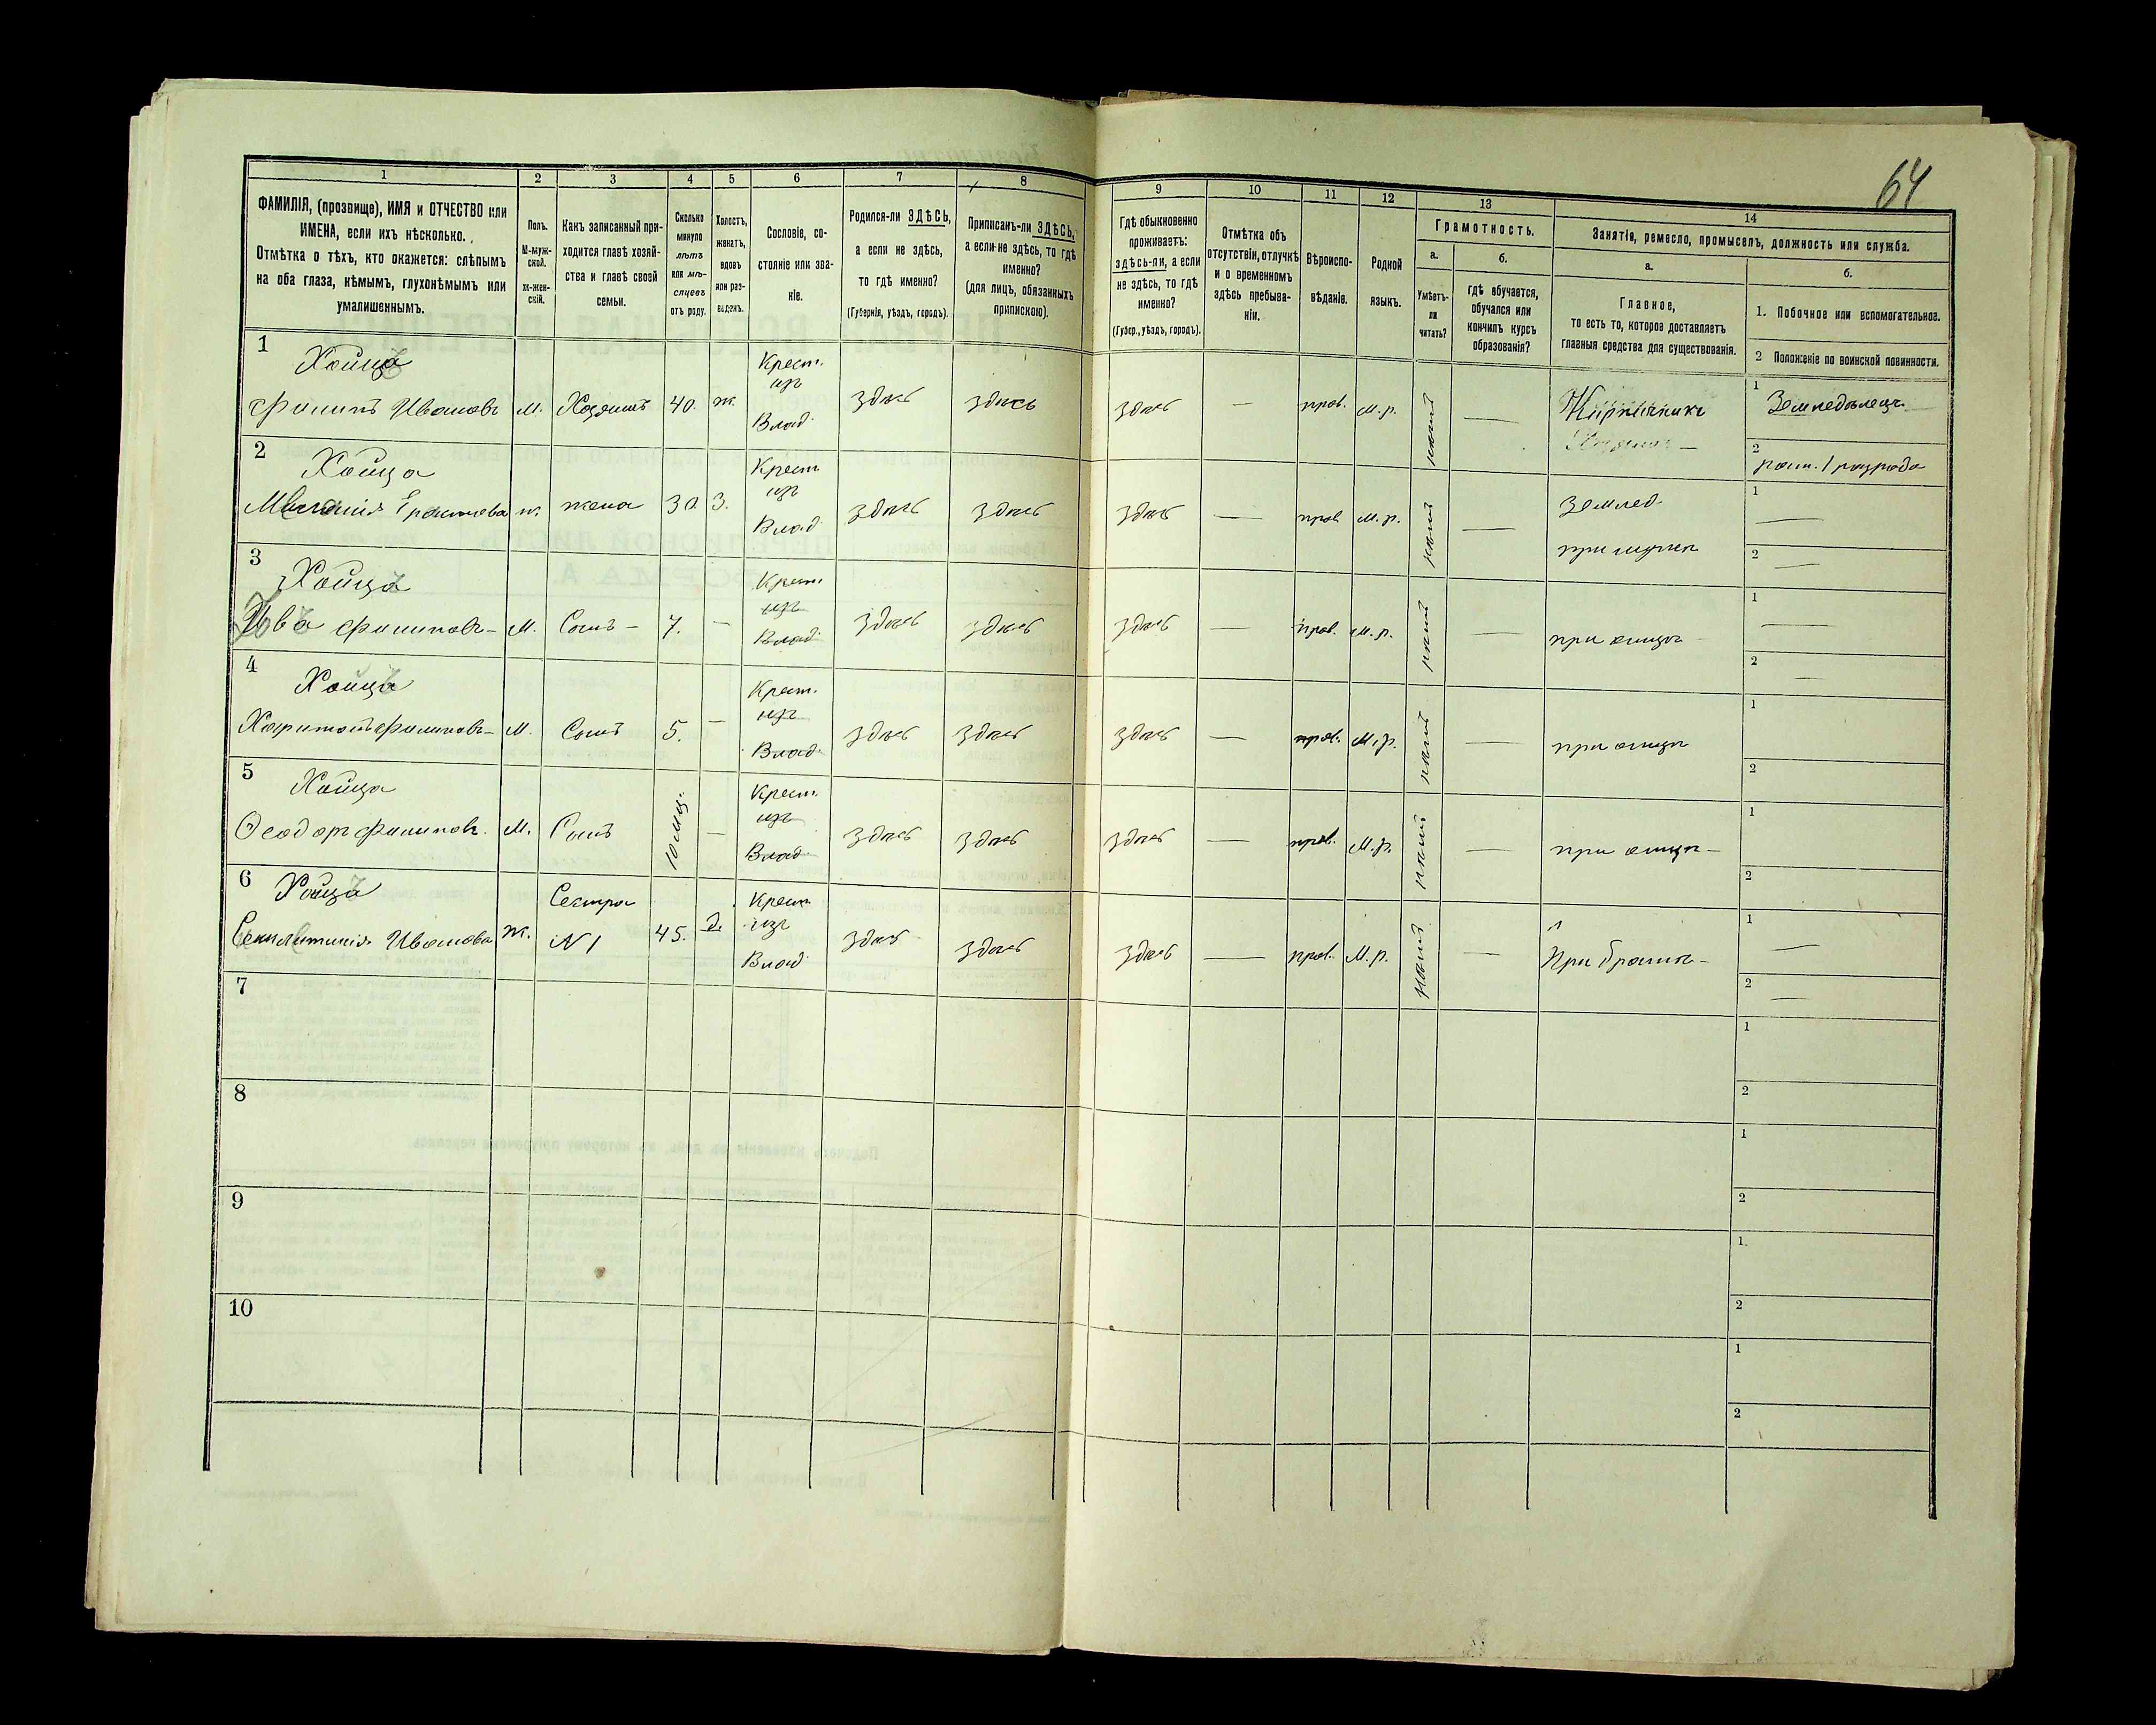 64
1 2 3 4 5 6 7 8 9 10 11 12 13 14
ФАМИЛІЯ, (прозвище), ИМЯ и ОТЧЕСТВО или
ИМЕНА, если ихъ нѣсколько.
Отмѣтка о тѣхъ, кто окажется: слѣпымъ
на оба глаза, нѣмымъ, глухонѣмымъ или
умалишеннымъ.
Полъ.
М-муж-
ской.
ж-жен-
скій.
Какъ записанный при-
ходится главѣ хозяй-
ства и главѣ своей
семьи.
Сколько
минуло
лѣтъ
или мѣ-
сяцевъ
отъ роду.
Холостъ,
женатъ,
вдовъ
или раз-
веденъ.
Сословіе, со-
стояніе или зва-
ніе.
Родился-ли ЗДѢСЬ,
а если не здѣсь,
то гдѣ именно?
(Губернія, уѣздъ, городъ).
Приписанъ-ли ЗДѢСЬ,
а если-не здѣсь, то гдѣ
именно?
(для лицъ, обязанныхъ
припискою).
Гдѣ обыкновенно
проживаетъ:
здѣсь-ли, а если
не здѣсь, то гдѣ
именно?
(Губер., уѣздъ, городъ).
Отмѣтка объ
отсутствіи, отлучкѣ
и о временномъ
здѣсь пребыва-
ніи.
Вѣроиспо-
вѣданіе.
Родной
языкъ.
Грамотность.
а.
Умѣетъ-
ли
читать?
б.
гдѣ обучается,
обучался или
кончилъ курсъ
образованія?
Занятіе, ремесло, промыселъ, должность или служба.
а.
Главное,
то есть то, которое доставляетъ
главныя средства для существованія.
б.
1. Побочное или вспомогательное.
2 Положеніе по воинской повинности.
1
Хойца
Филипъ Ивановъ М. Хозяинъ 40. ж. Крест. изъ Влад. здѣсь здѣсь здѣсь — прав. М.р. —
1 Земледѣлецъ
2 разряда
2
Хойца
ж. жена 30. З. Крест изъ Влад. здѣсь здѣсь здѣсь — прав М.р. — Землед. при мужѣ
1 —
2 —
3
Хойца
Филиповъ — М. Сынъ — 7. — Крест. изъ Влад. здѣсь здѣсь здѣсь — прав. М.р. — при отцѣ
1 —
2 —
4
Хойца
Харитонъ Филиповъ — М. Сынъ 5. — Крест. изъ Влад. здѣсь здѣсь здѣсь — прав. М.р. — при отцѣ
1
2
5
Хойца
Ѳеодоръ Филиповъ. М. Сынъ 10 мц. — Крест. изъ Влад. здѣсь здѣсь здѣсь — прав. М.р. — при отцѣ —
1
2
6
Хойца
Ивановa ж. Сестра N 1 45. д. Крест изъ Влад здѣсь здѣсь здѣсь — прав. М.р. — При братѣ —
1 —
2 —
7
1
2
8
1
2
9
1.
2
10
1
2